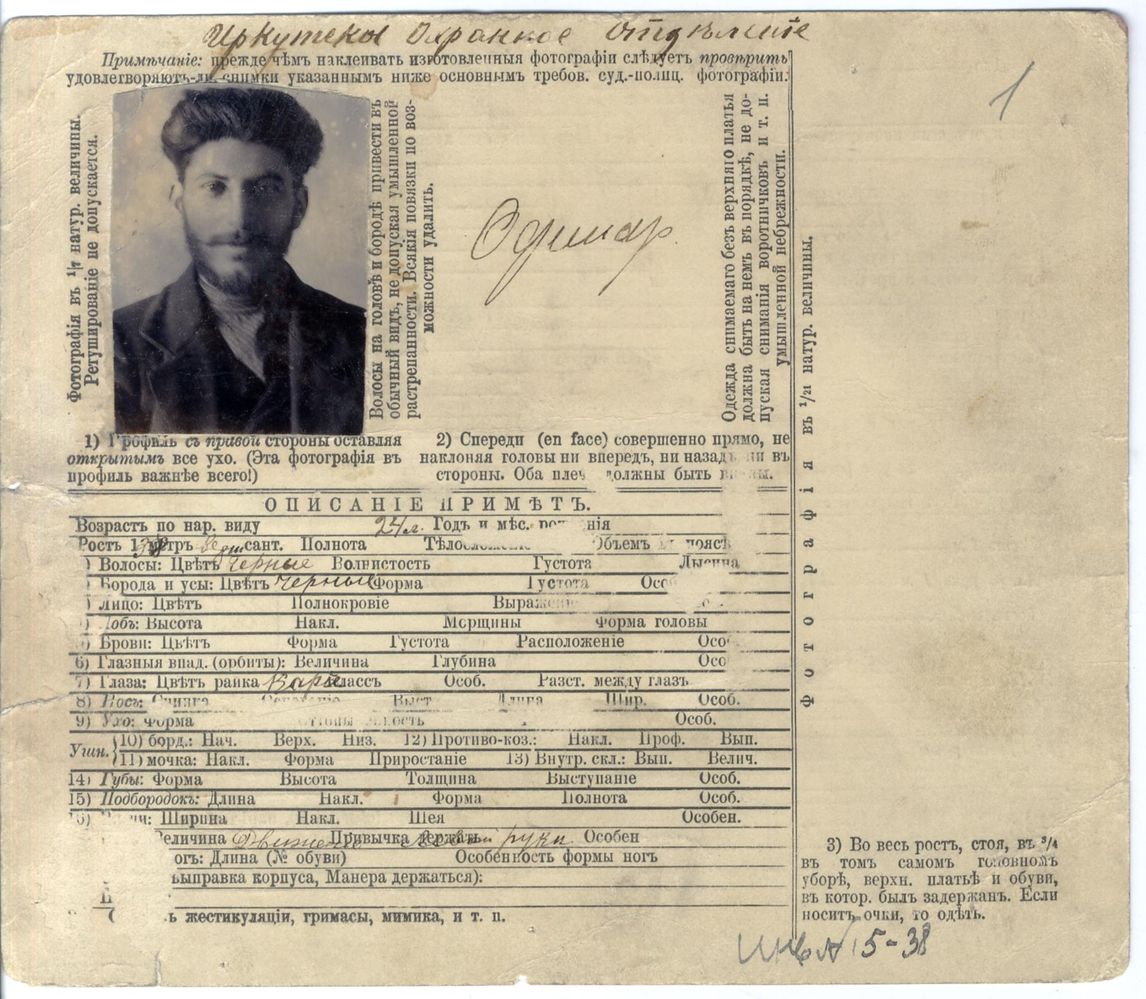 Иркутское Охранное Отделение
Примѣчаніе: прежде чѣмъ наклеивать изготовленныя фотографіи слѣдуетъ провѣрить
удовлетворяютъ-ли снимки указаннымъ ниже основнымъ требов. суд.-полиц. фотографіи:
1
Фотографія въ 1/7 натур. величины.
Ретушированіе не допускается.
Волосы на головѣ и бородѣ привести въ
обычный видъ, не допуская умышленной
растрепанности. Всякія повязки по воз-
можности удалить.
Одежда снимаемаго безъ верхняго платья
должна быть на немъ въ порядкѣ, не до-
пуская сниманія воротничковъ и т. п.
умышленной небрежности.
Фотографія въ 1/21 натур. величины.
1) Профиль съ правой стороны оставляя
открытымъ все ухо. (Эта фотографія въ
профиль важнѣе всего!)
2) Спереди (en face) совершенно прямо, не
наклоняя головы ни впередъ, ни назадъ ни въ
стороны. Оба плеч должны быть
ОПИСАНІЕ ПРИМѢТЪ.
Возрастъ по нар. виду 24 л. Годъ и мѣс.
Ростъ 1 метръ сант. Полнота
) Волосы: Цвѣтъ Черные Волнистость Густота Лысина
) Борода и усы: Цвѣтъ Черные Форма Густота Осо
) Лицо: Цвѣтъ Полнокровіе
) Лобъ: Высота Накл. Морщины Форма головы
) Брови: Цвѣтъ Форма Густота Расположеніе Осо
6) Глазныя впад. (орбиты): Величина Глубина Осо
7) Глаза: Цвѣтъ райка Карій классъ Особ. Разст. между глазъ
8) Носъ: Выст Длина Шир. Особ.
9) Ухо: Форма Особ.
Ушн. 10) борд.: Нач. Верх. Низ. 12) Противо-коз.: Накл. Проф. Вып.
11) мочка: Накл. Форма Приростаніе 13) Внутр. скл.: Вып. Велич.
14) Губы: Форма Высота Толщина Выступаніе Особ.
15) Подбородокъ: Длина Накл. Форма Полнота Особ.
Ширина Накл. Шея Особен.
еличина Движеніе Привычка держать руки Особен
огъ: Длина (№ обуви) Особенность формы ногъ
выправка корпуса, Манера держаться):
ъ жестикуляціи, гримасы, мимика, и т. п.
3) Во весь ростъ, стоя, въ 3/4
въ томъ самомъ головномъ
уборѣ, верхн. платьѣ и обуви,
въ котор. былъ задержанъ. Если
носитъ очки, то одѣть.
5-38